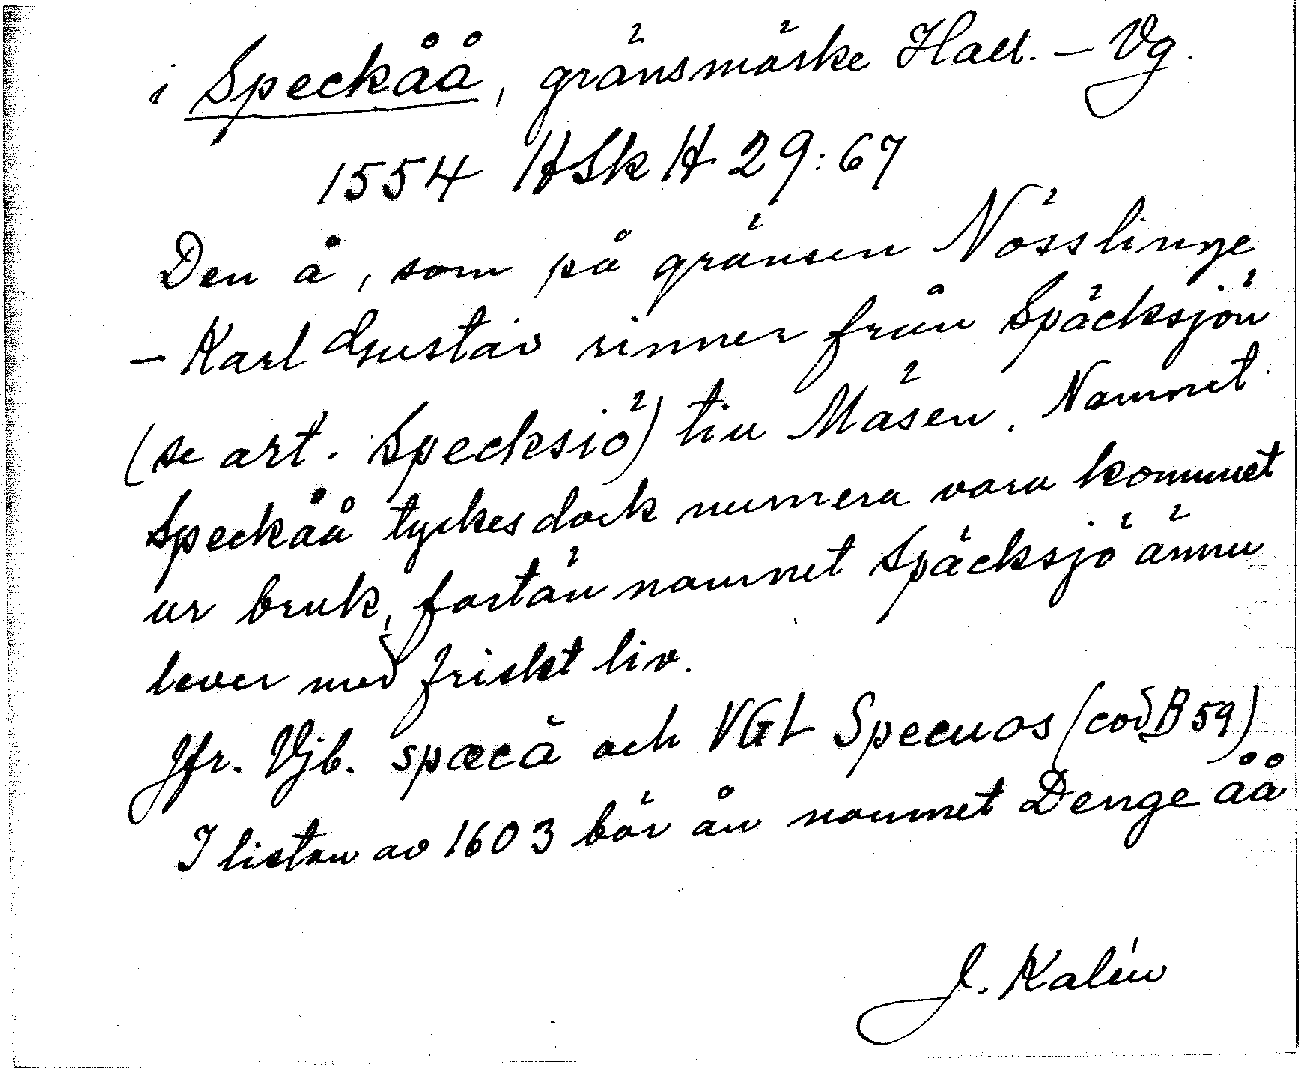 i Speckåå, gränsmärke Hall. – Vg.
1554 HSk H 29:67
Den å, som på gränsen Nösslinge
– Karl Gustav rinner från Späcksjön
(se art. Specksiö) till Mäsen. Namnet
Speckåå tyckes dock numera vara kommet
ur bruk, fastän namnet Späcksjö ännu
lever med friskt liv.
Jfr. Vjb. spæcá och VGL Specuos (cod B 59)
I listan av 1603 bär ån namnet Denge åå
J. Kalén